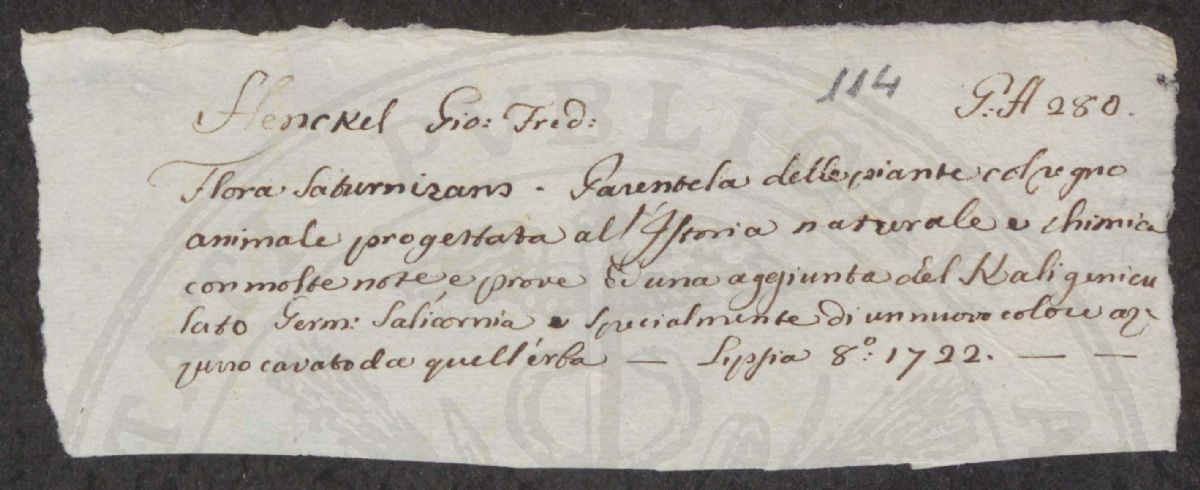 114
Henckel Gio: Fred: G: A 280.
Flora Saturnizans. Parentela delle piante col regno
animale progettata all'Istoria naturale e chimica
con molte note e prove ed una aggiunta del Kali genicu
lato Germ: Salicornia e specialmente di un nuovo colore az
zurro cavato da quell'erba — Lipsia 8.º 1722. — —